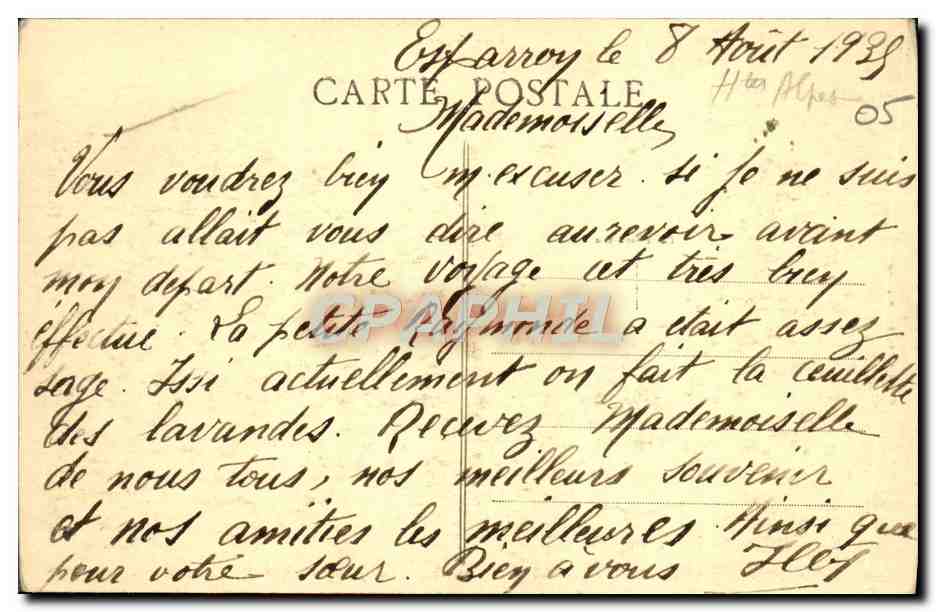 Esparron le 8 Août 1935
Htes Alpes
CARTE POSTALE
05
Mademoiselle,
Vous voudrez bien m'escuser. si je ne suis
pas allait vous dire aurevoir avant
mon depart. Notre voyage cet très bien
éffectue. La petite Raymonde a etait assez
sage. Issi actuellement on fait la ceuillette
des lavandes. Recevez Mademoiselle
de nous tous, nos meilleurs souvenir
et nos amities les meilleures. Ainsi que
pour votre sœur. Bien a vous
CPAPHIL